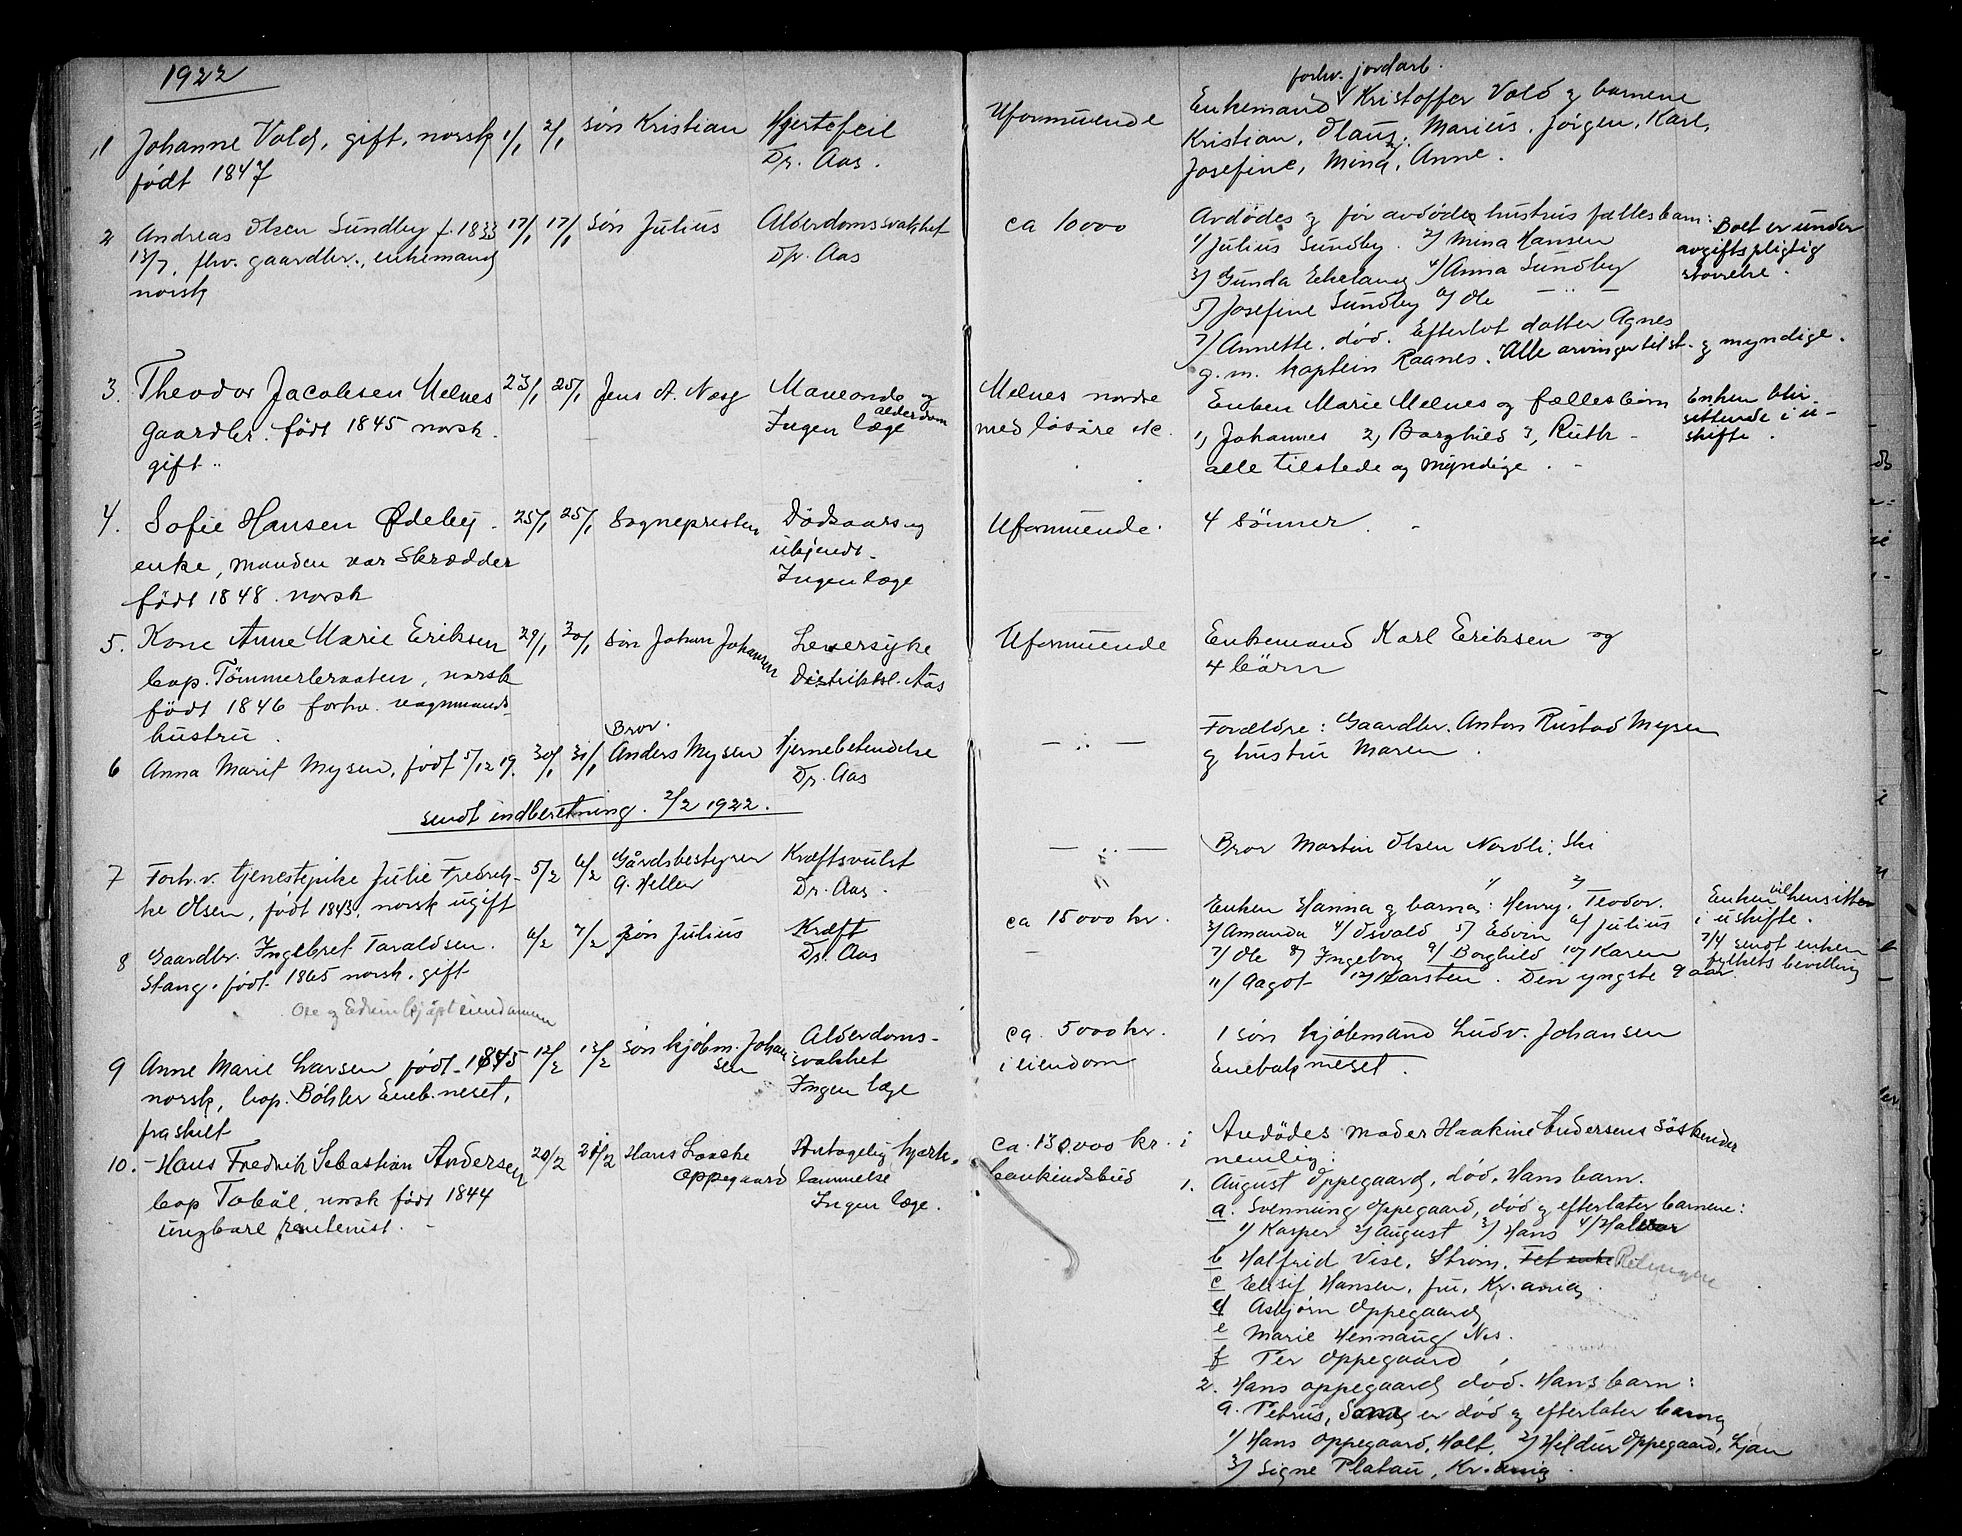 1922
1 Johanne Vold, gift, norsk 1/1 2/1 søn Kristian Hjertefeil
født 1847 Dr. Aas.
2 Andreas Olsen Sundby f. 1833 17/1 17/1 søn Julius Alderdomssvakhet
13/7, fhv. gaardbr., enkemand Dr. Aas
norsk
3. Theodor Jacobsen Melnes 23/1 25/1 Jens A. Næs Maveonde og
alderdom
Gaardbr. født 1845 norsk. Ingen læge
gift.
4. Sofie Hansen Ødeby. 25/1 25/1 Sognepresten Dødsaarsag
enke, manden var Skrædder ukjendt.
født 1848. norsk Ingen læge
5. Kone Anne Marie Eriksen 29/1 30/1 søn Johan Johansen Leversyke
bop. Tømmerbraaten, norsk Distriktsl. Aas
født 1846 forhv. vognmands-
hustru.
Bror.
6 Anna Marit Mysen, født 5/12 19. 30/1 31/1 Anders Mysen Hjernebetendelse
Dr. Aas
sendt indberetning. 2/2 1922.
7 Forhv. tjenestepike Julie Fredrik- 5/2 6/2 Gårdsbestyrer Kræftsvulst
ke Olsen, født 1843, norsk ugift G. Heller Dr. Aas.
8 Gaardbr. Ingebret Taraldsen. 6/2 7/2 søn Julius Kræft
Stang. født 1865 norsk. gift Dr. Aas
Ole og Edvin kjøpt eiendommen
9 Anne Marie Larsen født 1845 12/2 13/2 søn kjøbm. Johan Alderdoms-
sen svakhet
norsk, bop. Böhler Eneb.neset, Ingen læge
fraskilt
10. Hans Fredrik Sebastian Andersen 20/2 21/2 Hans Antagelig hjerte-
bop Tobøl, norsk født 1844 Oppegaard lammelse
ungkarl rentenist. Ingen læge.
forhv. jordarb.
Uformuende Enkemand Kristoffer Vold og barnene
Kristian, Olaus, Marius, Jørgen, Karl,
Josefine, Mina, Anne.
ca 10000 Avdødes og før avdødes hustrus fællesbarn: Boet er under
1/ Julius Sundby. 2/ Mina Hansen avgiftspligtig
3/ Gunda Ekeland 4/ Anna Sundby størrelse.
5/ Josefine Sundby 6/ Ole — " —
7/ Annette. død. Efterlot datter Agnes
g. m. kaptein Raanes. Alle arvinger tilst. og myndige.
Melnes nordre Enken Marie Melnes og fællesbörn Enken blir
med løsöre etc. 1, Johannes 2, Borghild 3, Ruth - sittende i u-
alle tilstede og myndige. skifte.
Uformuende. 4 sønner.
Uformuende Enkemand Karl Eriksen og
4 börn
— " — Forældre: Gaardbr. Anton Rustad Mysen
og hustru Maren.
— " — Bror Martin Olsen Nordli, Ski
ca 15000 kr. Enken Hanna og barna: 1/ Henry, 2/ Teodor. Enken vil hensitte
3/ Amanda 4/ Osvald 5/ Edvin 6/ Julius i uskifte.
7/ Ole 8/ Ingeborg 9/ Borghild 10/ Karen 7/4 sendt enken
11/ Aagot 12/ Karsten. Den yngste 9 aar. fylkets bevilling
ca. 5000 kr. 1 søn kjøbmand Ludv. Johansen
i eiendom Enebakneset.
ca. 130,000 kr. i Avdødes moder Haakine Andersens søskende
bankindskud nemlig:
1. August Oppegaard, død, Hans barn.
a. Svennung Oppegaard, død og efterlater barnene:
1/ Kasper 2/ August 3/ Hans 4/ Halvor
b Halfrid Vise, Strøm, Fet enke
c Elisif Hansen, fru, Kr.ania
d Asbjørn Oppegaard
e Marie Hennaug Nes.
f Per Oppegaard
2. Hans Oppegaard død. Hans barn:
a. Petrus, Sand er død og efterlater barna
1/ Hans Oppegaard, Holt, 2/ Hildur Oppegaard, Ljan
3/ Signe Platau, Kr.ania.